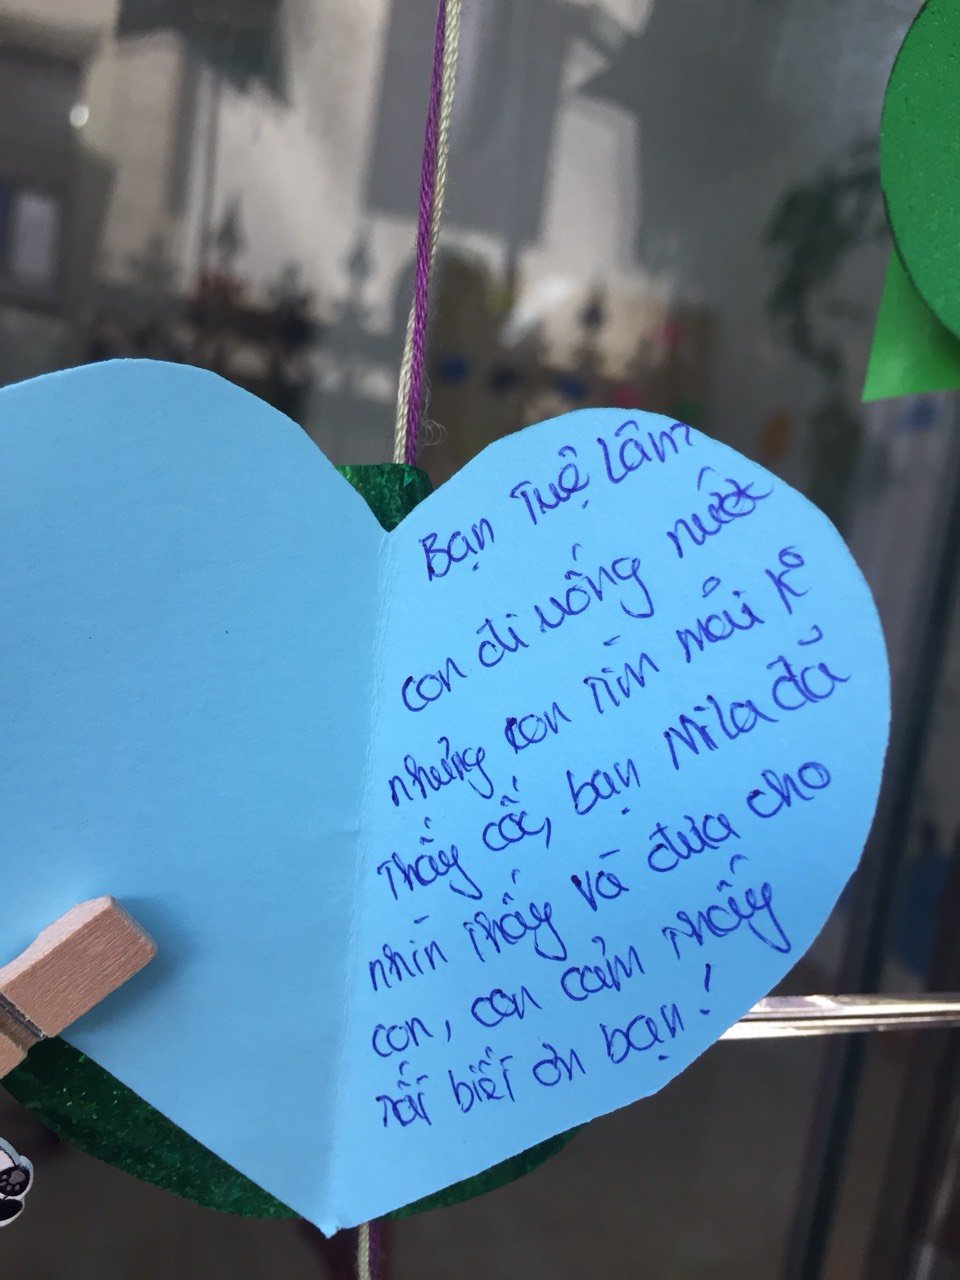 Bạn Tuệ Lâm
con đi uống nước
nhưng con tìm mãi k
thấy cốc, bạn Mila đã
nhìn thấy và đưa cho
con, con cảm thấy
rất biết ơn bạn!